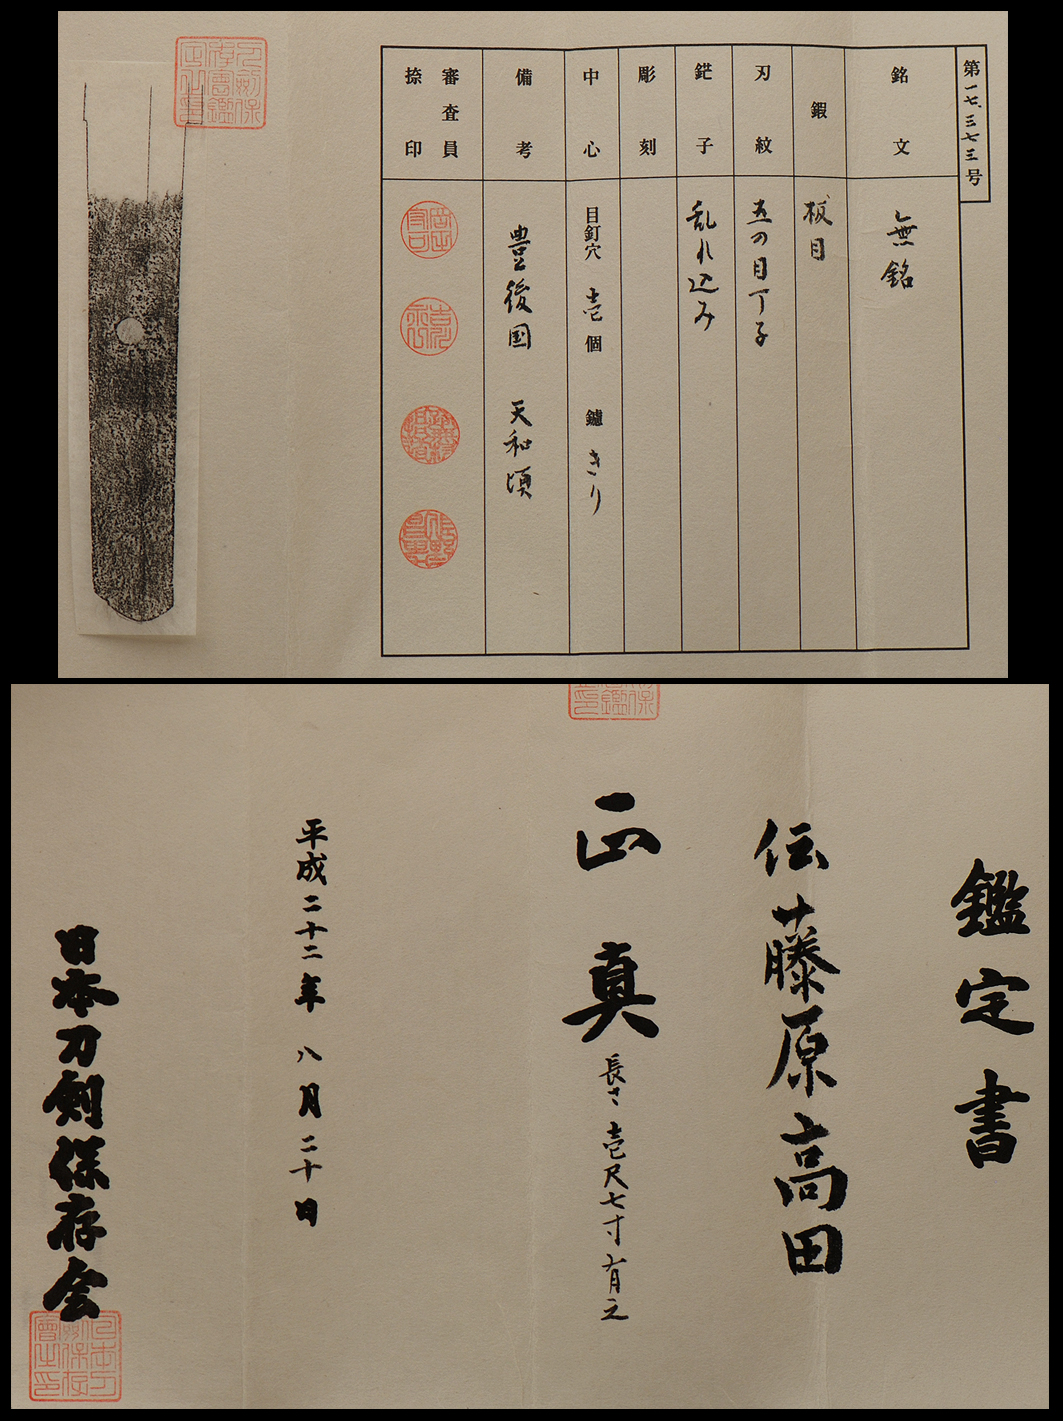 第一七、三七三号
銘文
無銘
鍜
板目
刃紋
五の目丁子
鋩子
乱れ込み
彫刻
中心
目釘穴 壱個 鑢 きり
備考
豊後国 天和頃
審査員
捺印
鑑定書
伝藤原高田
正真
長さ 壱尺七寸有之
平成二十二年 八月二十日
日本刀剣保存会